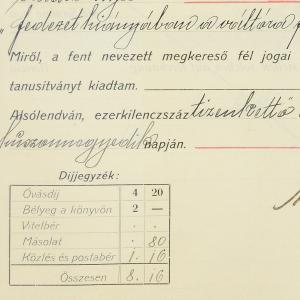 "fedezet hiányában a váltóra
Miről, a fent nevezett megkereső fél jogai
tanusitványt kiadtam.
Alsólendván, ezerkilenczszáz tizenkettő
huszonnegyedik napján.
Díjjegyzék:
Óvásdíj 4 20
Bélyeg a könyvön 2 —
Vitelbér . .
Másolat . 80
Közlés és postabér 1. 16
Összesen 8. 16